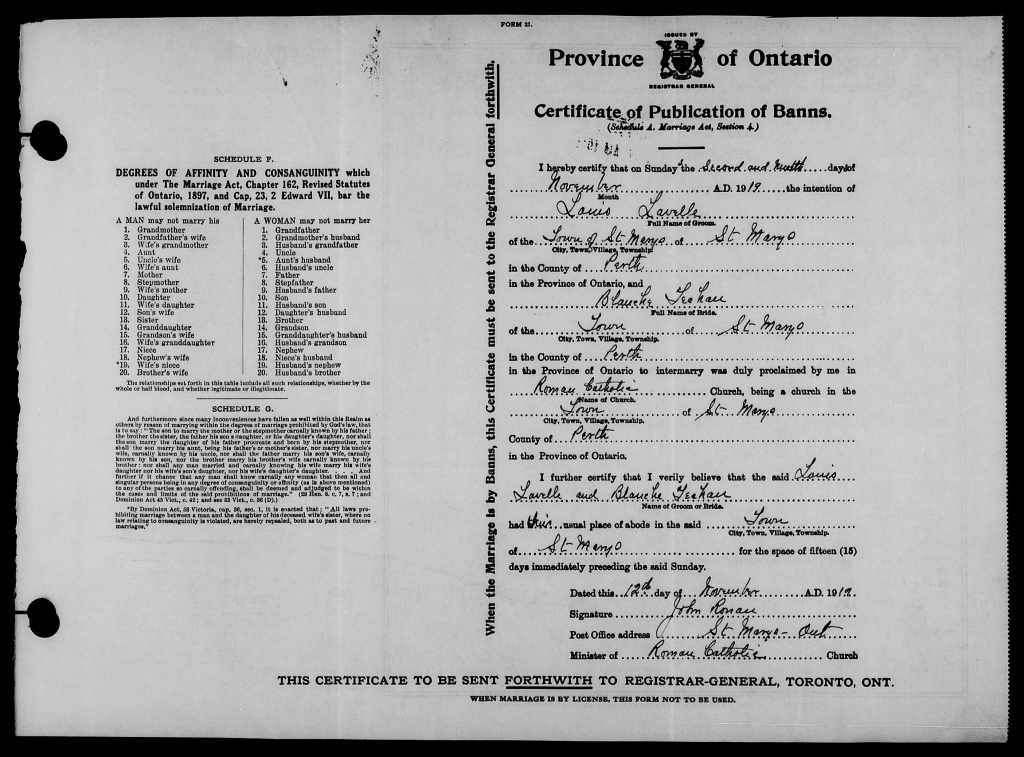 FORM 21.
SCHEDULE F.
DEGREES OF AFFINITY AND CONSANGUINITY which
under The Marriage Act, Chapter 162, Revised Statutes
of Ontario, 1897, and Cap, 23, 2 Edward VII, bar the
lawful solemnization of Marriage.
A MAN may not marry his
1. Grandmother
2. Grandfather's wife
3. Wife's grandmother
4. Aunt
5. Uncle's wife
6. Wife's aunt
7. Mother
8. Stepmother
9. Wife's mother
10. Daughter
11. Wife's daughter
12. Son's wife
13. Sister
14. Granddaughter
15. Grandson's wife
16. Wife's granddaughter
17. Niece
18. Nephew's wife
*19. Wife's niece
20. Brother's wife
A WOMAN may not marry her
1. Grandfather
2. Grandmother's husband
3. Husband's grandfather
4. Uncle
*5. Aunt's husband
6. Husband's uncle
7. Father
8. Stepfather
9. Husband's father
10. Son
11. Husband's son
12. Daughter's husband
13. Brother
14. Grandson
15. Granddaughter's husband
16. Husband's grandson
17. Nephew
18. Niece's husband
19. Husband's nephew
20. Husband's brother
The relationships set forth in this table include all such relationships, whether by the
whole or half blood, and whether legitimate or illegitimate.
SCHEDULE G.
And furthermore since many inconveniences have fallen as well within this Realm as
others by reason of marrying within the degrees of marriage prohibited by God's law, that
is to say: "The son to marry the mother or the stepmother carnally known by his father;
the brother the sister, the father his son's daughter, or his daughter's daughter, nor shall
the son marry the daughter of his father procreate and born by his stepmother, nor
shall the son marry his aunt, being his father's or mother's sister, nor marry his uncle's
wife, carnally known by his uncle, nor shall the father marry his son's wife, carnally
known by his son, nor the brother marry his brother's wife carnally known by his
brother; nor shall any man married and carnally knowing his wife marry his wife's
daughter nor his wife's son's daughter, nor his wife's daughter's daughter. . . . And
further if it chance that any man shall know carnally any woman that then all and
singular persons being in any degree of consanguinity or affinity (as is above mentioned)
to any of the parties so carnally offending, shall be deemed and adjudged to be within
the cases and limits of the said prohibitions of marriage." (28 Hen. 8. c. 7, s. 7; and
Dominion Act 45 Vict., c. 42; and see 53 Vict., c. 36 (D).)
*By Dominion Act, 53 Victoria, cap. 36, sec. 1, it is enacted that: "All laws pro-
hibiting marriage between a man and the daughter of his deceased wife's sister, where no
law relating to consanguinity is violated, are hereby repealed, both as to past and future
marriages."
When the Marriage is by Banns, this Certificate must be sent to the Registrar General forthwith.
ISSUED BY
Province of Ontario
REGISTRAR GENERAL
Certificate of Publication of Banns.
(Schedule A. Marriage Act, Section 4.)
I hereby certify that on Sunday the Second and Ninth days of
November A.D. 1919 the intention of
Month
Louis Lavelle
Full Name of Groom.
of the Town of St Marys of St Marys
City, Town, Village, Township.
in the County of Perth
in the Province of Ontario, and
Blanche
Full Name of Bride.
of the Town of St Marys
City, Town, Village, Township.
in the County of Perth
in the Province of Ontario to intermarry was duly proclaimed by me in
Roman Catholic Church, being a church in the
Name of Church.
Town of St Marys
City, Town, Village, Township.
County of Perth
in the Province of Ontario.
I further certify that I verily believe that the said Louis
Lavelle and Blanche
Name of Groom or Bride.
had their usual place of abode in the said Town
City, Town, Village, Township.
of St Marys for the space of fifteen (15)
days immediately preceding the said Sunday.
Dated this 12th day of November A.D. 1919.
Signature John Ronan
Post Office address St Marys - Ont
Minister of Roman Catholic Church
THIS CERTIFICATE TO BE SENT FORTHWITH TO REGISTRAR-GENERAL, TORONTO, ONT.
WHEN MARRIAGE IS BY LICENSE, THIS FORM NOT TO BE USED.